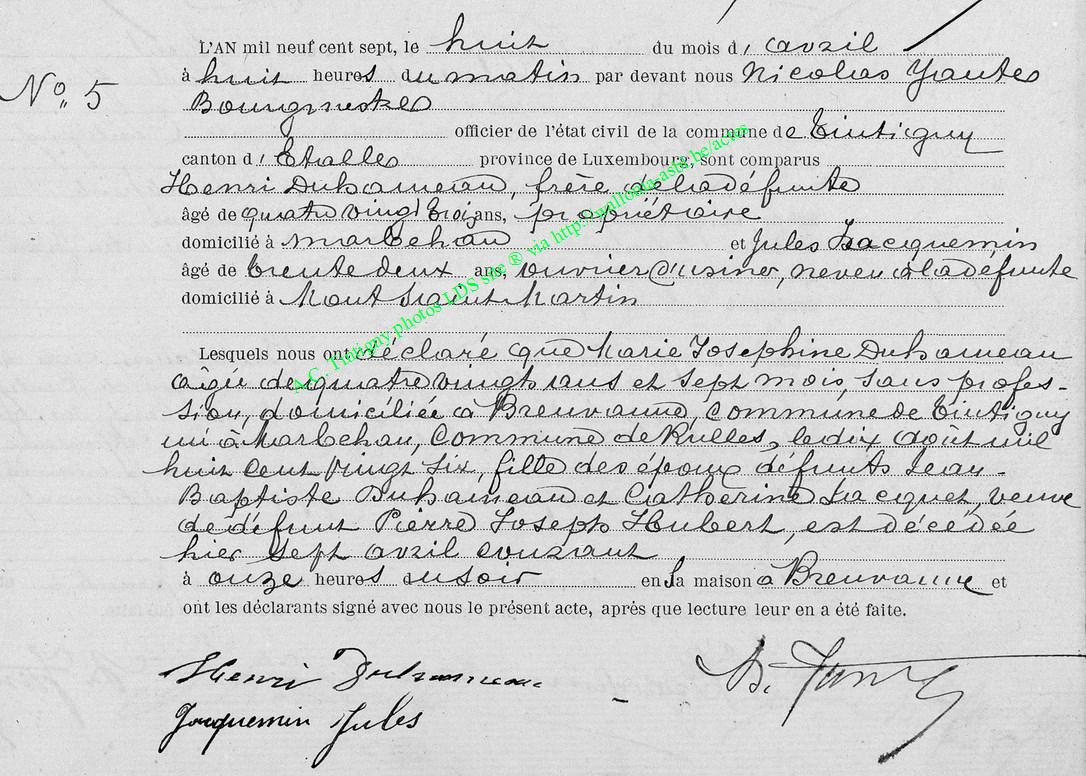 L'AN mil neuf cent sept, le huit du mois d'avril
No. 5
à huit heures du matin par devant nous Nicolas
Bourgmestre
officier de l'état civil de la commune de Tintigny
canton d'Etalle province de Luxembourg, sont comparus
Henri Duhameau, frère de la défunte
âgé de quatre vingt trois ans, propriétaire
domicilié à Marbehan et Jules Jacquemin
âgé de trente deux ans, ouvrier d'usine, neveu à la défunte
domicilié à Mont Saint Martin
Lesquels nous ont déclaré que Marie Josephine Duhameau
âgée de quatre vingts ans et sept mois, sans profes-
sion, domiciliée à Breuvanne, commune de Tintigny
née à Marbehan, commune de Rulles, le dix août mil
huit cent vingt six, fille des époux défunts Jean-
Baptiste Duhameau et Catherine Jacquet, veuve
de défunt Pierre Joseph Hubert, est décédée
hier sept avril courant
à onze heures du soir en sa maison à Breuvanne et
ont les déclarants signé avec nous le présent acte, après que lecture leur en a été faite.
Henri Duhameau
Jacquemin Jules
A.C. Tintigny photos LDS site ® via http://wallonia-asbl.be/actes